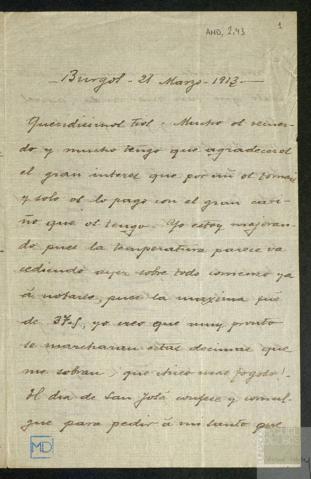 AND, 2.43
1
- Burgos - 21 Marzo - 1913 -
Queridisimos Tios - Mucho os recuer-
do y mucho tengo que agradeceros
el gran interes que por mi os tomais
y solo os lo pago con el gran cari-
ño que os tengo. Yo estoy mejoran-
do pues la temperatura parece va
cediendo ayer sobre todo comenzo ya
á notarse, pues la maxima fue
de 37-5, yo creo que muy pronto
se marcharan estas decimas que
me sobran ¡que chico mas fogoso!
El dia de San José confese y comul-
gue para pedir á mi santo que
MD